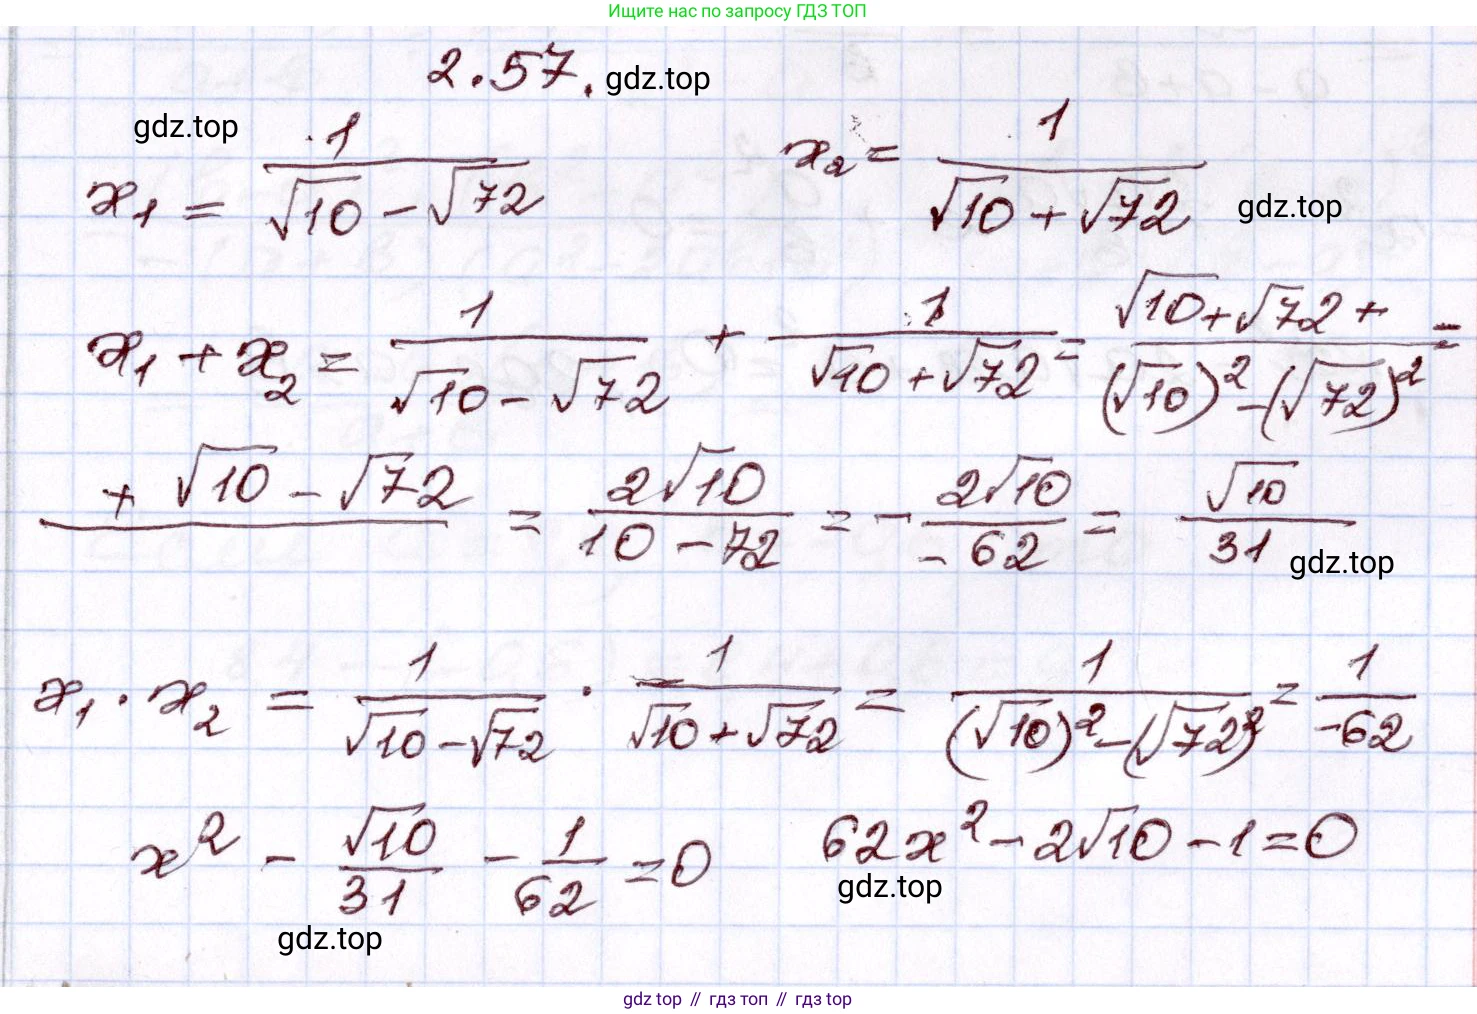 Ищите нас по запросу ГДЗ ТОП
2.57. gdz.top
gdz.top
x₁ = 1/(√10 − √72)    x₂ = 1/(√10 + √72)    gdz.top
x₁ + x₂ = 1/(√10 − √72) + 1/(√10 + √72) = (√10 + √72 +)/((√10)² − (√72)²) =
+ √10 − √72 = 2√10/(10 − 72) = − 2√10/(−62) = √10/31    gdz.top
x₁ · x₂ = 1/(√10 − √72) · 1/(√10 + √72) = 1/((√10)² − (√72)²) = 1/(−62)
x² − √10/31 − 1/62 = 0    62x² − 2√10 − 1 = 0
gdz.top
gdz.top
gdz top // гдз топ // гдз top